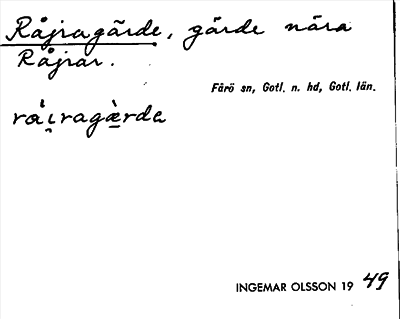 Råjragärde, gärde nära
Råjrar.
Fårö sn, Gotl. n. hd, Gotl. län.
INGEMAR OLSSON 19 49